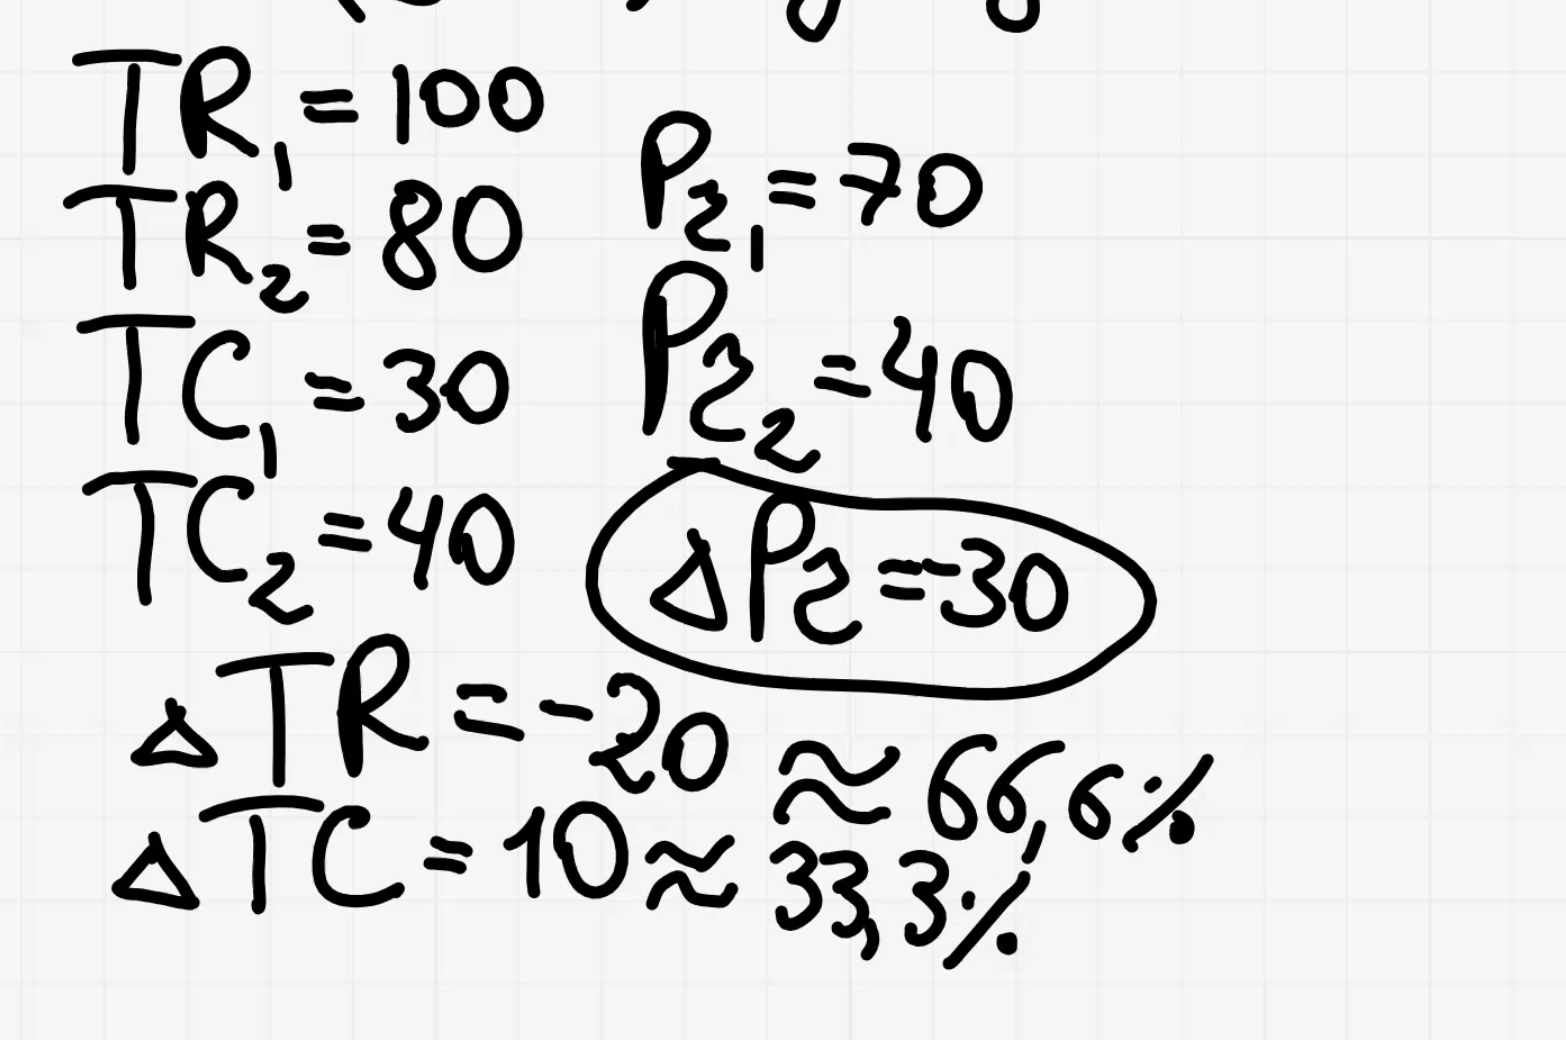 TR₁ = 100
TR₂ = 80
TC₁ = 30
TC₂ = 40
Pr₁ = 70
Pr₂ = 40
ΔPr = -30
ΔTR = -20 ≈ 66,6%
ΔTC = 10 ≈ 33,3%